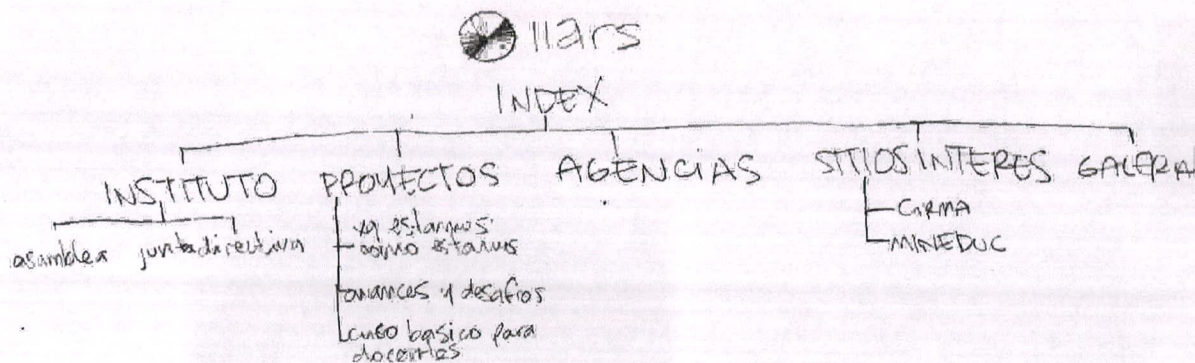 IIars
INDEX
INSTITUTO PROYECTOS AGENCIAS SITIOS INTERES GALERIA
asamblea junta directiva
ya estamos
como estamos
avances y desafios
curso basico para
docentes
CIRMA
MINEDUC